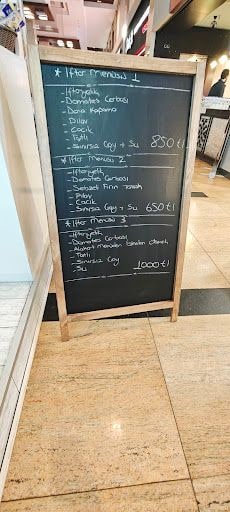 * İftar menüsü 1
- İftariyelik
- Domates Çorbası
- Dana Kapama
- Pilav
- Cacık
- Tatlı
- Sınırsız Çay + Su 850 tl
* İftar Menüsü 2
- İftariyelik
- Domates Çorbası
- Sebzeli Fırın
- Pilav
- Cacık
- Sınırsız Çay + Su 650 tl
* İftar Menüsü 3
- İftariyelik
- Domates Çorbası
- Tatlı
- Sınırsız Çay
- Su 1000 tl